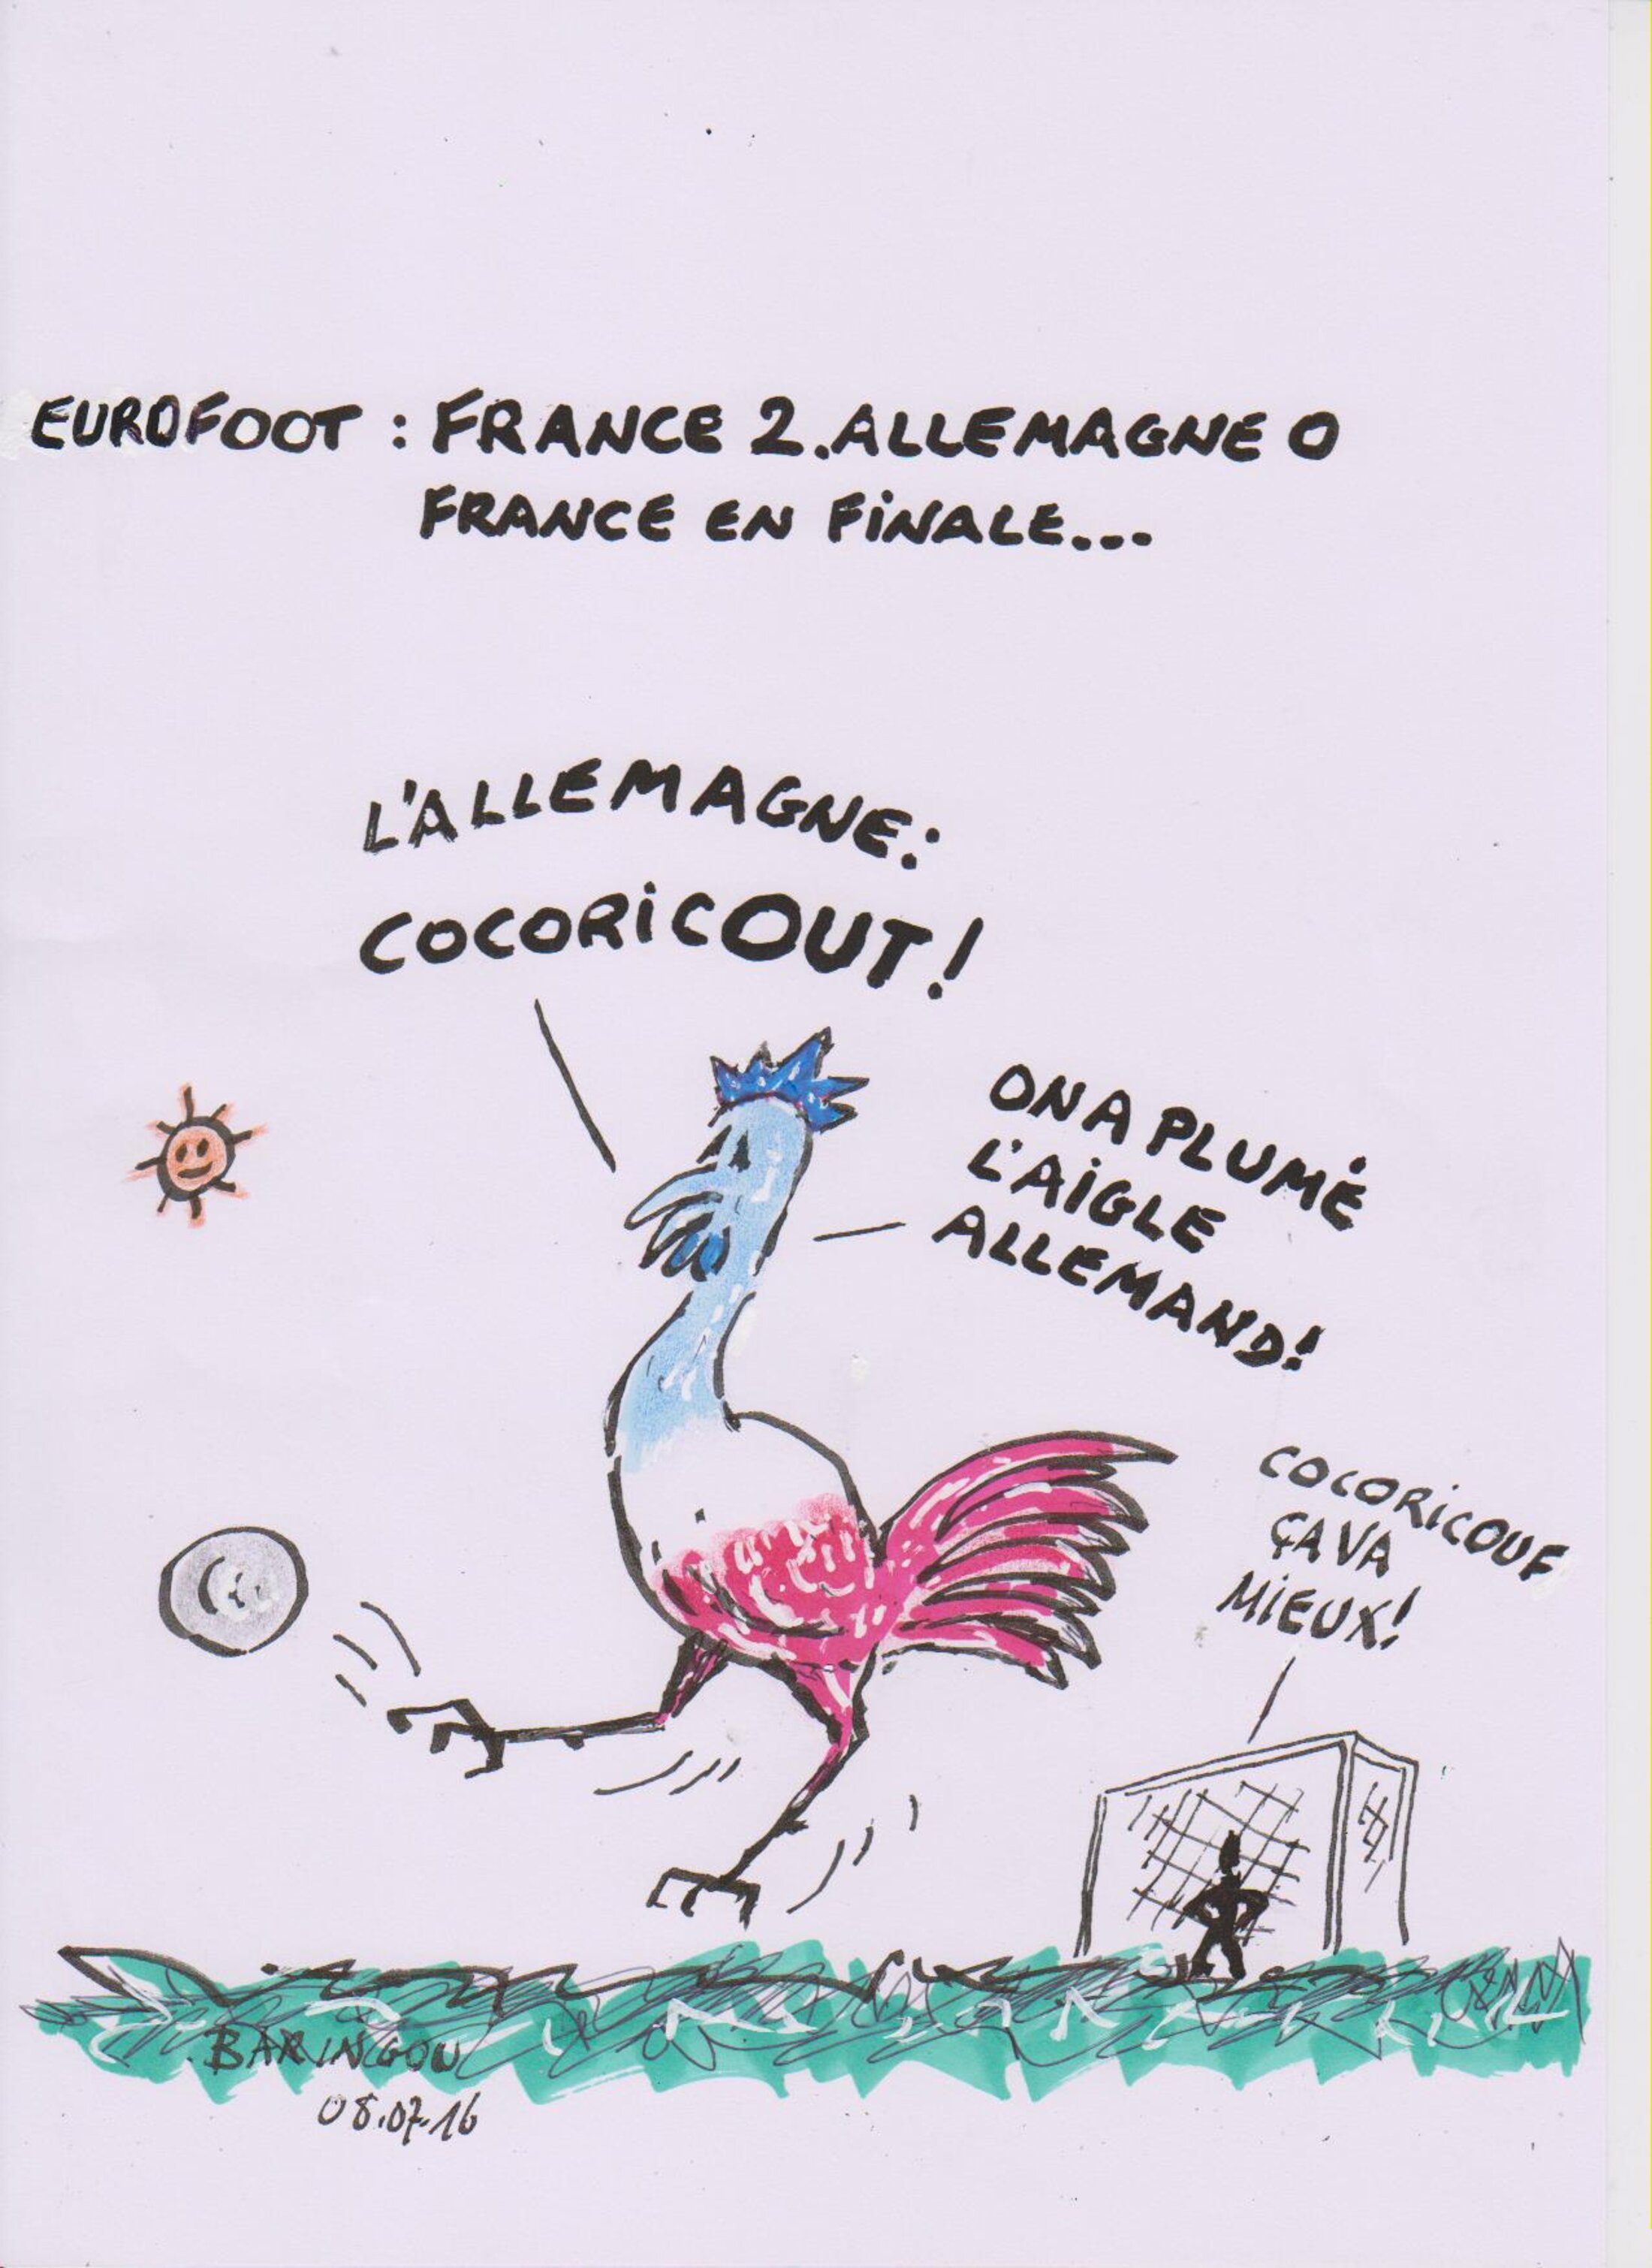 EUROFOOT : FRANCE 2.ALLEMAGNE 0
FRANCE EN FINALE...
L'ALLEMAGNE:
COCORICOUT!
ON A PLUMÉ
L'AIGLE
ALLEMAND!
COCORICOUF
ÇA VA
MIEUX!
BARINGOU
08.07.16